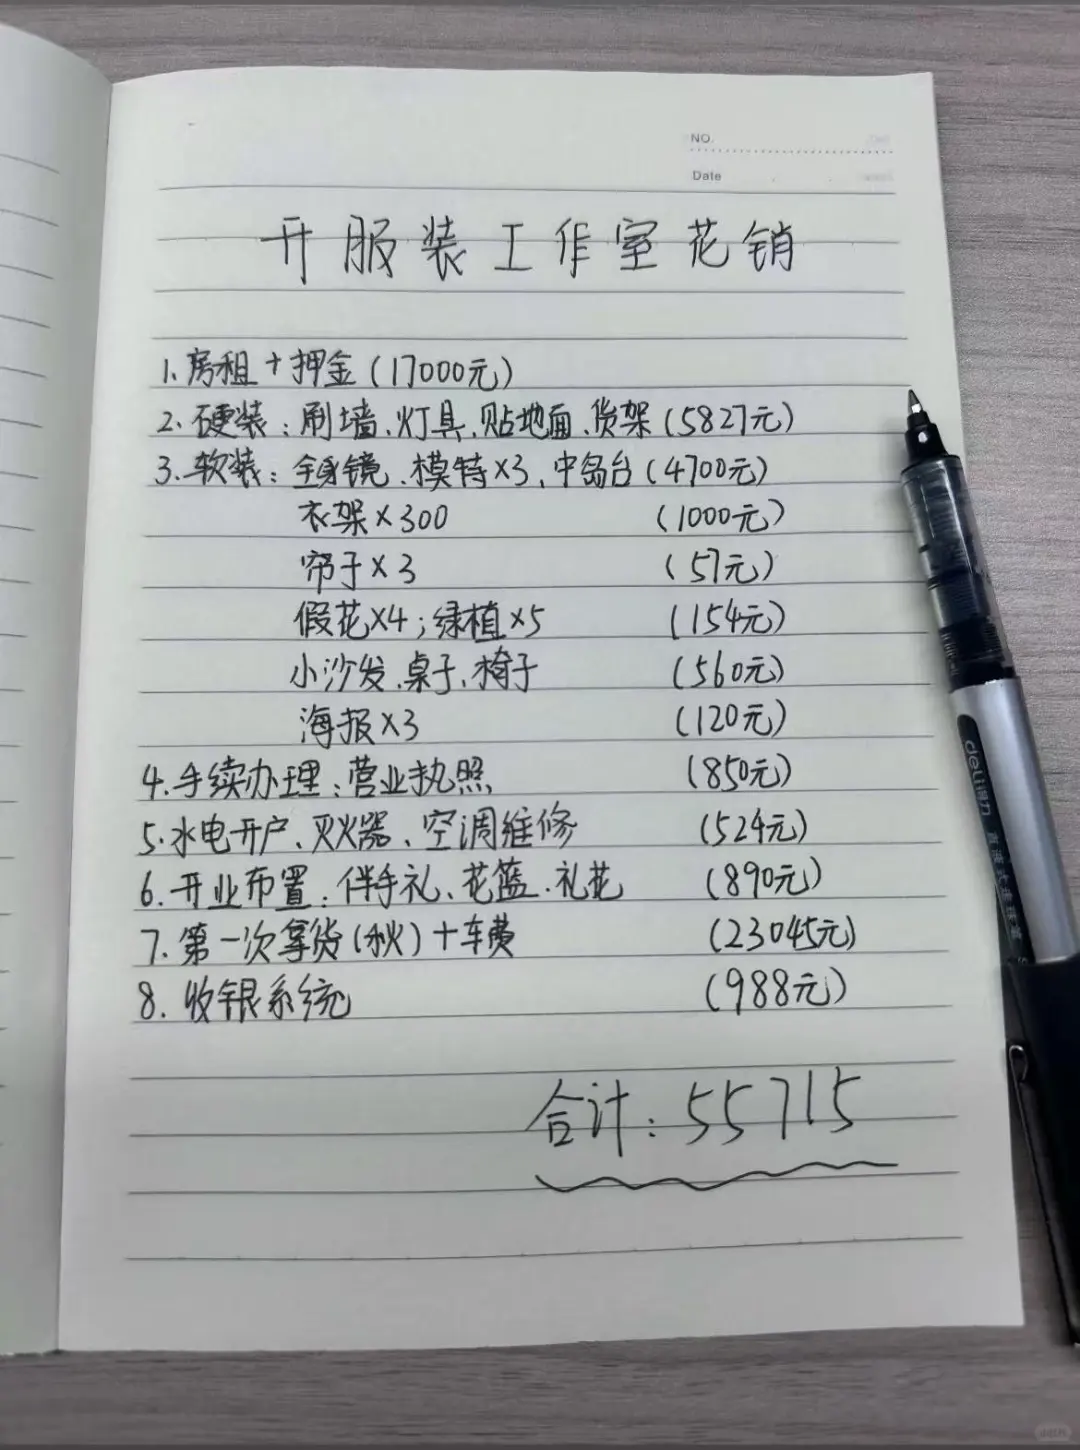 NO.
Date
开服装工作室花销
1.房租+押金(17000元)
2.硬装:刷墙、灯具、贴地面、货架(5827元)
3.软装:全身镜、模特×3、中岛台(4700元)
衣架×300 (1000元)
帘子×3 (57元)
假花×4;绿植×5 (154元)
小沙发、桌子、椅子 (560元)
海报×3 (120元)
4.手续办理:营业执照 (850元)
5.水电开户、灭火器、空调维修 (524元)
6.开业布置:伴手礼、花篮、礼花 (890元)
7.第一次拿货(秋)+车费 (23045元)
8.收银系统 (988元)
合计:55715
deli得力 直液式走珠笔